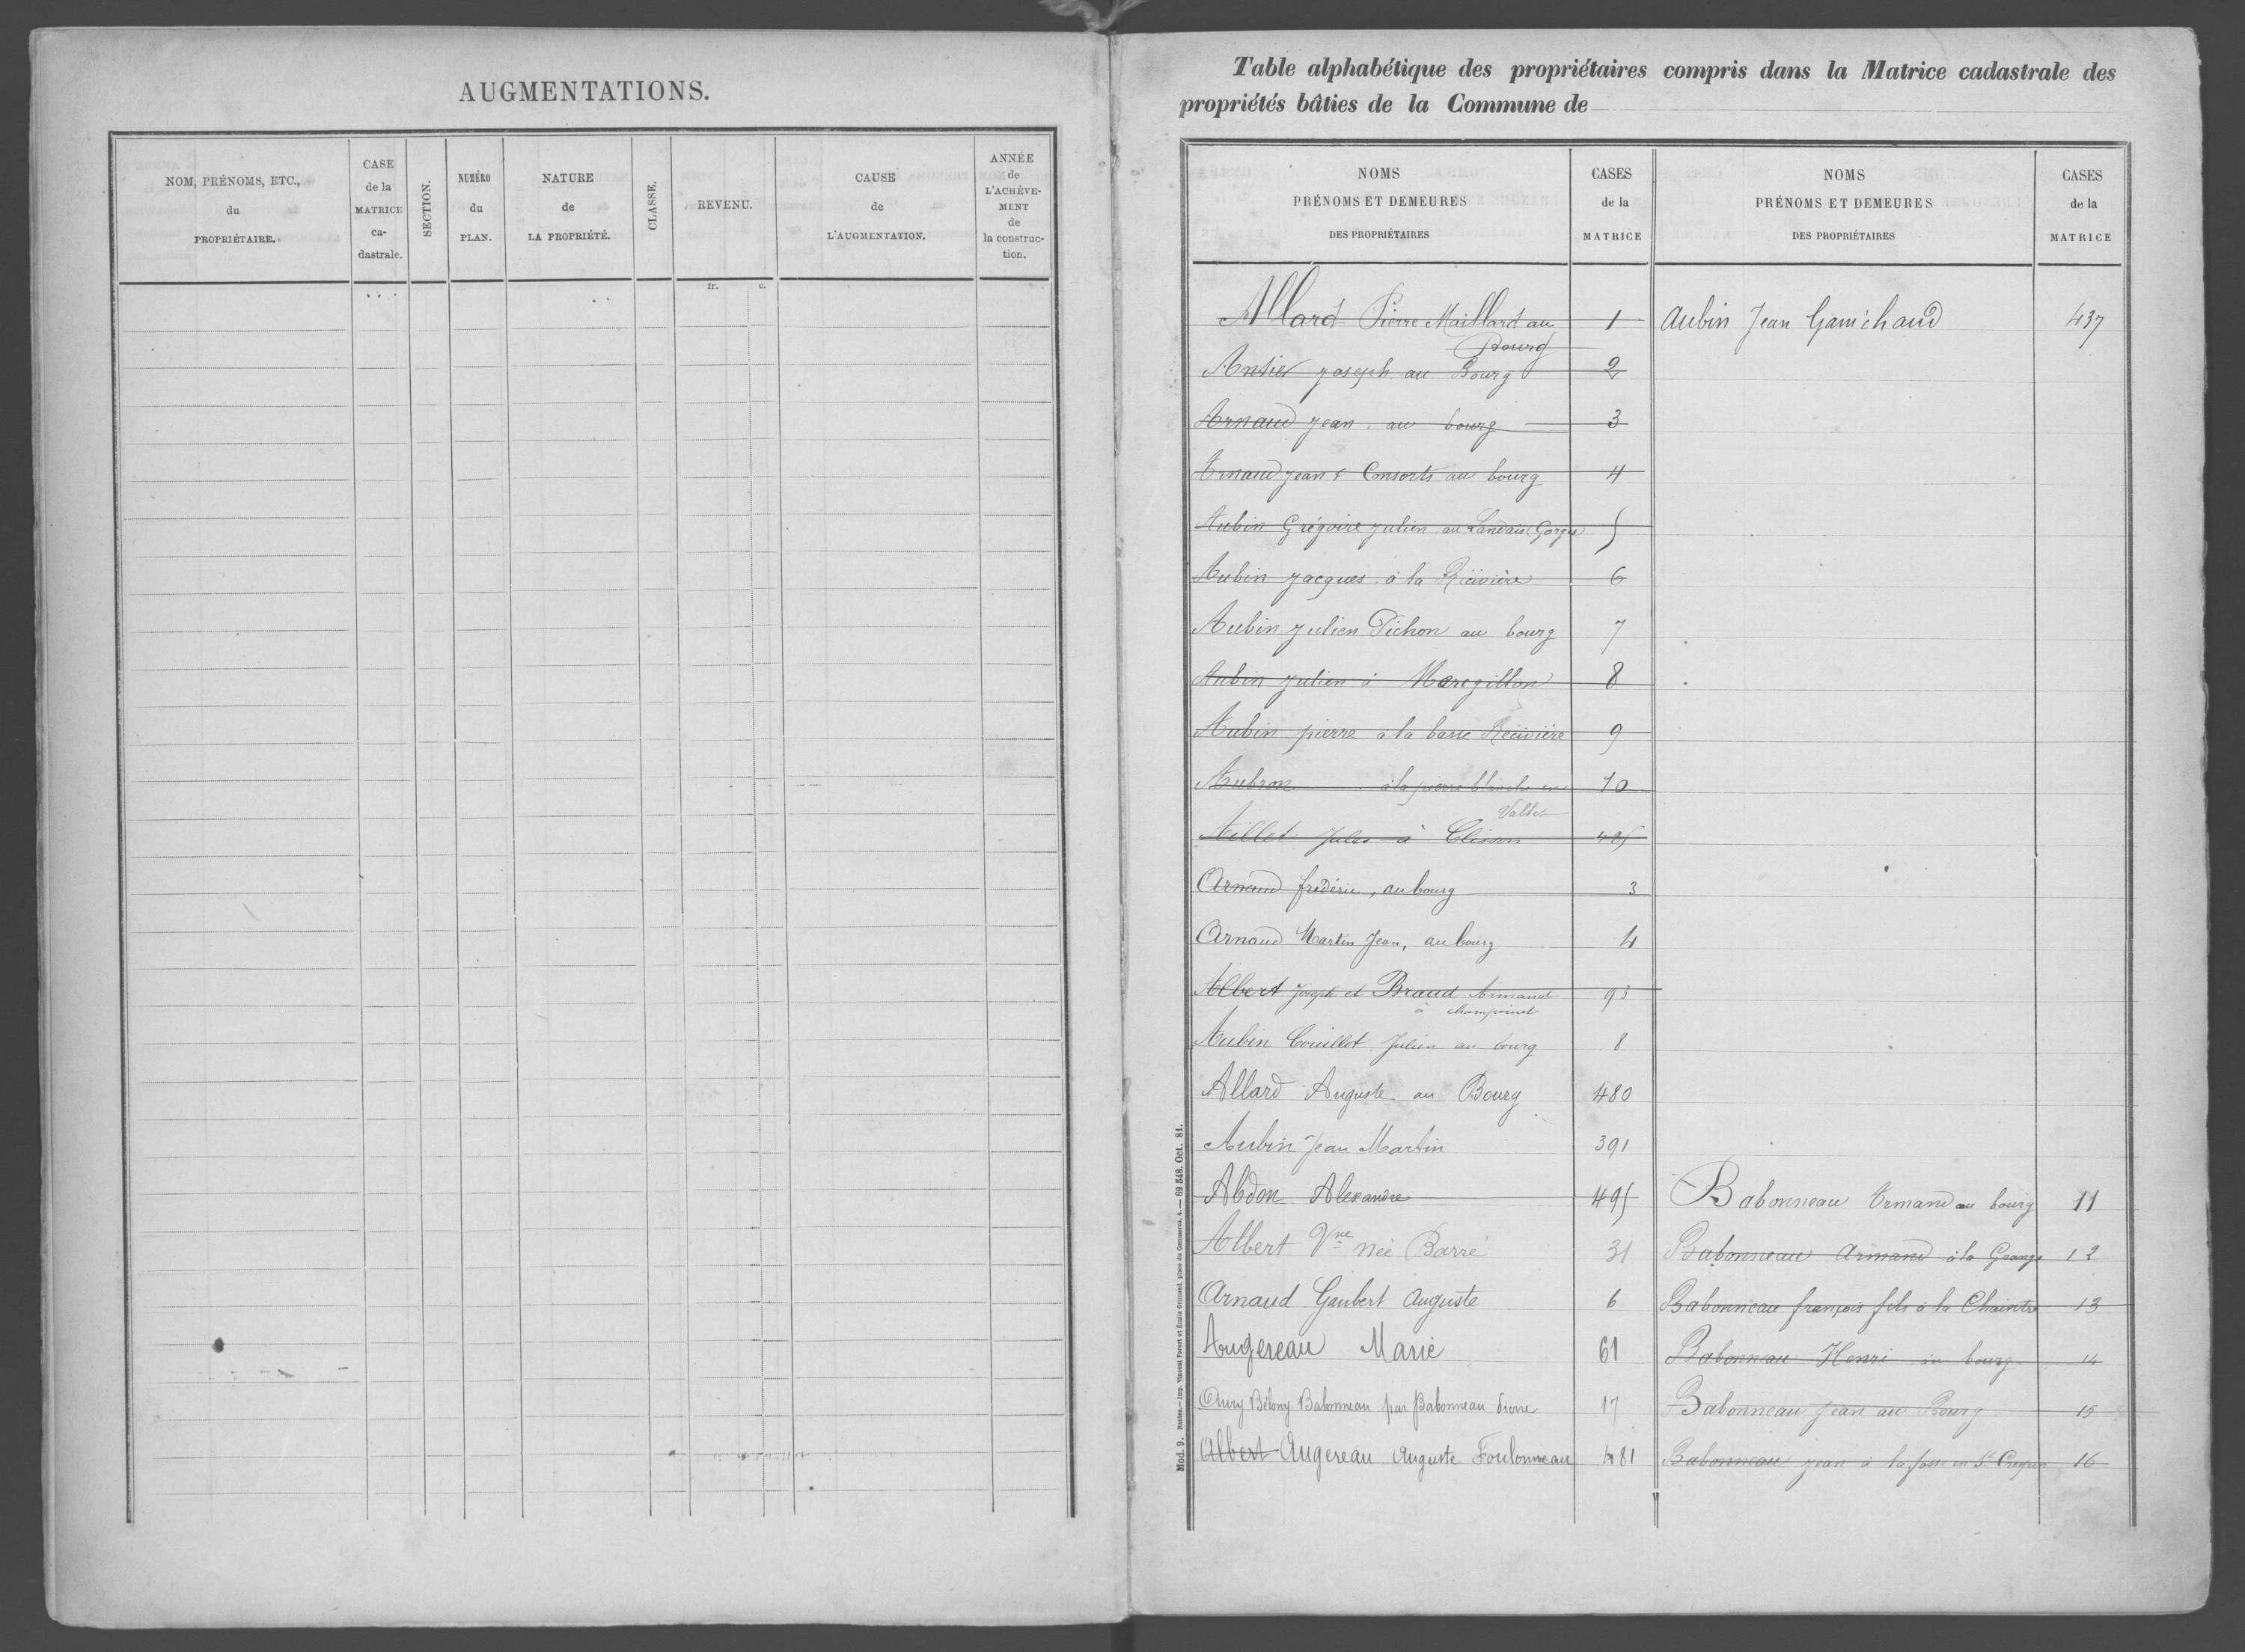 AUGMENTATIONS.
NOM, PRÉNOMS, ETC.,
du
PROPRIÉTAIRE.
CASE
de la
MATRICE
ca-
dastrale.
SECTION.
NUMÉRO
du
PLAN.
NATURE
de
LA PROPRIÉTÉ.
CLASSE.
REVENU.
fr. c.
CAUSE
de
L'AUGMENTATION.
ANNÉE
de
L'ACHÈVE-
MENT
de
la construc-
tion.
Table alphabétique des propriétaires compris dans la Matrice cadastrale des
propriétés bâties de la Commune de
NOMS
PRÉNOMS ET DEMEURES
DES PROPRIÉTAIRES
CASES
de la
MATRICE
NOMS
PRÉNOMS ET DEMEURES
DES PROPRIÉTAIRES
CASES
de la
MATRICE
Allard Pierre Maillard au 1
Bourg
Antier Joseph au Bourg 2
Arnaud Jean au bourg 3
Arnaud Jean & Consorts au bourg 4
Aubin Grégoire Julien au Landais Gorges 5
Aubin Jacques à la 6
Aubin Julien Pichon au bourg 7
Aubin Julien à 8
Aubin pierre à la basse 9
Aubron à la pierre blanche en 10
Vallet
Aillet Jules à Clisson 425
Arnaud frédéric, au bourg 3
Arnaud Martin Jean, au bourg 4
Albert Joseph et Braud Armand 93
à
Aubin Couillet Julien au bourg 8
Allard Auguste au Bourg 480
Aubin Jean Martin 391
Abdon Alexandre 495
Albert Vve née Barré 31
Arnaud Gaubert Auguste 6
Augereau Marie 61
Babonneau par Babonneau Pierre 17
Albert Augereau Auguste Foulonneau 481
Mod. 9. Nantes. — Imp. Vincent Forest et Émile Grimaud, place du Commerce, 4. — 69 548. Oct. 81.
Aubin Jean Ganichaud 437
Babonneau Armand au bourg 11
Babonneau Armand à la Grange 12
Babonneau françois fils à la Chaintre 13
Babonneau Henri au bourg 14
Babonneau Jean au Bourg 15
Babonneau Jean à la fosse en St Crespin 16